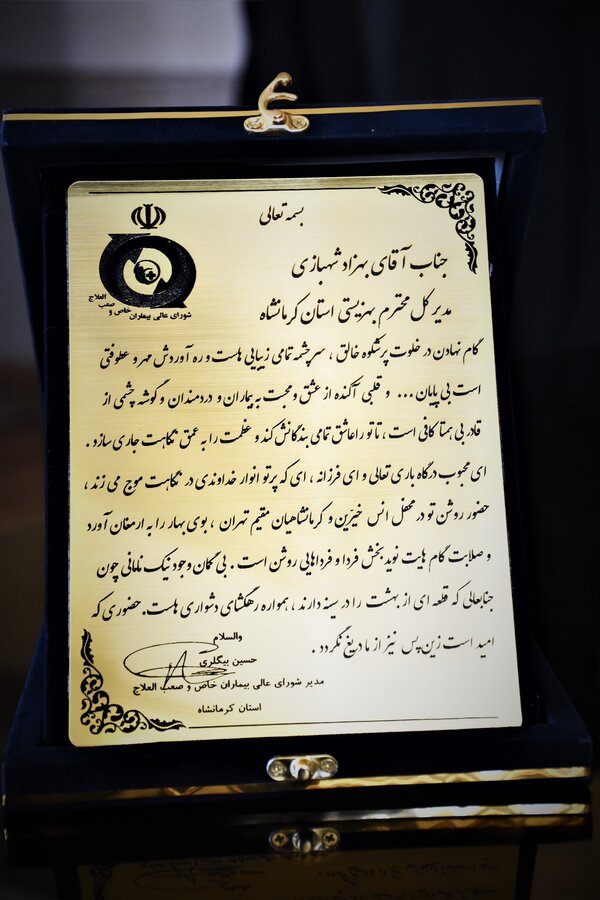 بسمه تعالی
شورای عالی بیماران خاص و صعب العلاج
جناب آقای بهزاد شهبازی
مدیر کل محترم بهزیستی استان کرمانشاه
گام نهادن در خلوت پرشکوه خالق ، سرچشمه تمامی زیبایی هاست و ره آوردش مهر و عطوفتی
است بی پایان ... و قلبی آکنده از عشق و محبت به بیماران و دردمندان و گوشه چشمی از
قادر بی همتا کافی است ، تا تو را عاشق تمامی بندگانش کند و عظمت را به عمق نگاهت جاری سازد .
ای محبوب درگاه باری تعالی و ای فرزانه ، ای که پرتو انوار خداوندی در نگاهت موج می زند ،
حضور روشن تو در محفل انس خیّرین و کرمانشاهیان مقیم تهران ، بوی بهار را به ارمغان آورد
و صلابت گام هایت نوید بخش فردا و فرداهایی روشن است . بی گمان وجود نیک نامانی چون
جنابعالی که قطعه ای از بهشت را در سینه دارند ، همواره رهگشای دشواری هاست. حضوری که
امید است زین پس نیز از ما دریغ نگردد .
والسلام
حسین بیگلری
مدیر شورای عالی بیماران خاص و صعب العلاج
استان کرمانشاه